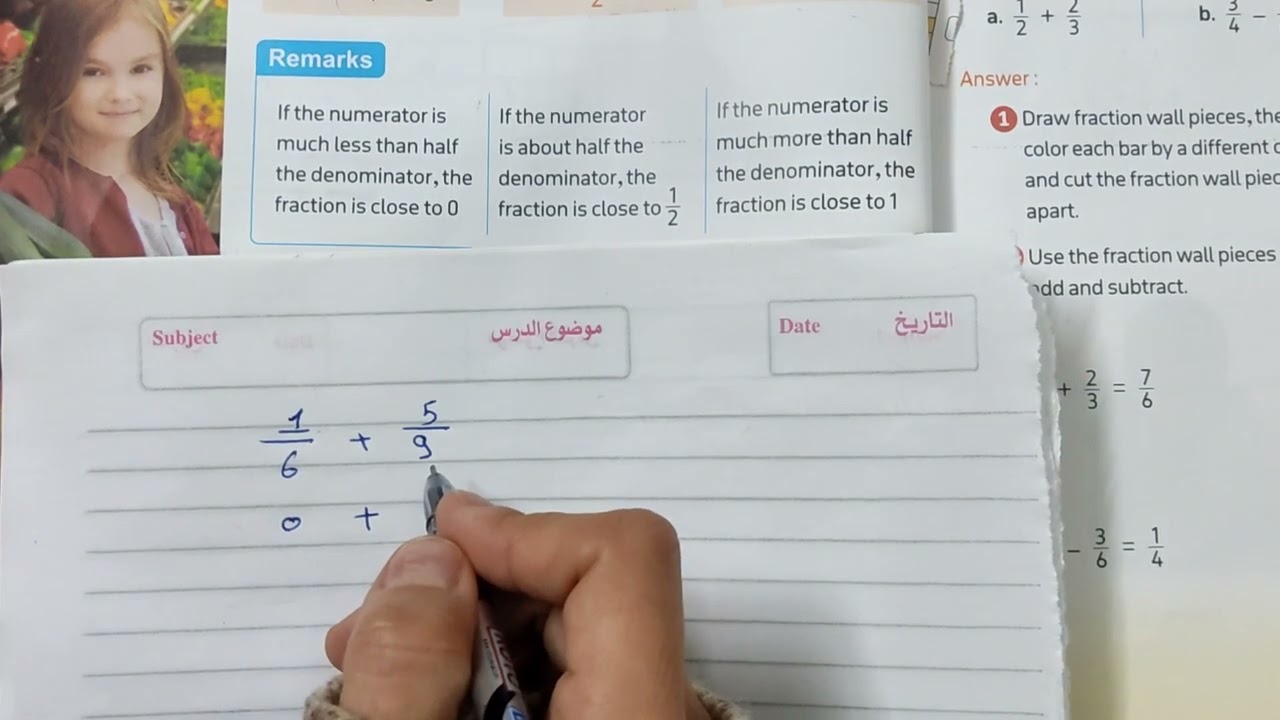 Remarks
If the numerator is
much less than half
the denominator, the
fraction is close to 0
If the numerator
is about half the
denominator, the
fraction is close to 1/2
If the numerator is
much more than half
the denominator, the
fraction is close to 1
a. 1/2 + 2/3
b. 3/4 -
Answer :
1 Draw fraction wall pieces, the
color each bar by a different
and cut the fraction wall piec
apart.
Use the fraction wall pieces
add and subtract.
+ 2/3 = 7/6
- 3/6 = 1/4
Subject موضوع الدرس
Date التاريخ
1/6 + 5/9
0 +